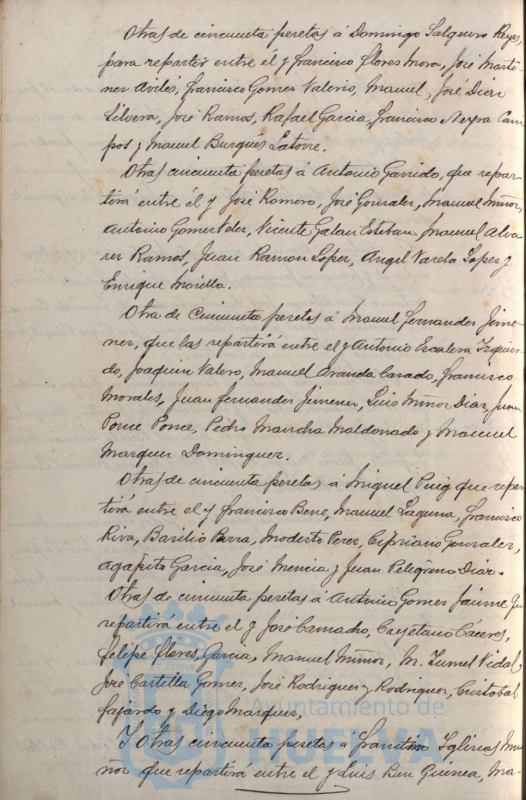 Otras de cincuenta pesetas á Domingo Salguero Reyes,
para repartir entre el y Francisco Flores Moro, José Marti-
nez Aviles, Francisco Gomez Valerio, Manuel, José Diaz
Silvera, José Ramos, Rafael Garcia, Francisco Neyra Cam-
pos y Manuel Burgués Latorre.
Otras cincuenta pesetas á Antonio Garrido, que repar-
tirá entre él y José Romero, José Gonzalez, Manuel Muñoz,
Antonio Gomez Vicente Galan Esteban, Manuel Alva-
rez Ramos, Juan Ramon Lopez, Angel Varela Lopez y
Enrique Morillo.
Otra de Cincuenta pesetas á Manuel Fernandez Jime-
nez, que las repartirá entre el y Antonio Escalera Izquier-
do, Joaquin Valero, Manuel Aranda Casado, Francisco
Morales, Juan Fernandez Jimenez, Luis Muñoz Diaz, Juan
Ponce Ponce, Pedro Mancha Maldonado y Manuel
Marquez Dominguez.
Otras de cincuenta pesetas á Miguel Puig que repar-
tirá entre el y Francisco Bene, Manuel Laguna, Francisco
Riva, Basilio Parra, Modesto Perez, Cipriano Gonzalez,
Agapito Garcia, José Mencia y Juan Peligrino Diaz.
Otras de cincuenta pesetas á Antonio Gomez Jaime q.
repartirá entre el y José Camacho, Cayetano Cáceres,
Felipe Flores Garcia, Manuel Muñoz, M. Tumel Vidal,
José Castilla Gomez, José Rodriguez y Rodriguez, Cristobal
Fajardo y Diego Marquez,
Y Otras cincuenta pesetas á Iglesias Mu-
ñoz que repartirá entre el y Luis Ben Guinea, Ma-
Ayuntamiento de
HUELVA